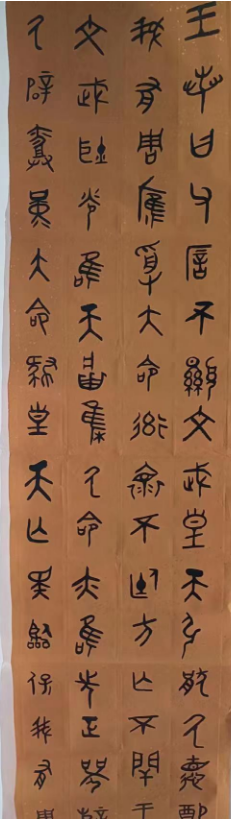 王若曰父㕌不顯文武皇天引猒氒德配
我有周雁受大命率褱不廷方亡不閈于
文武耿光唯天𤖕集氒命亦唯先正襄辥
氒辟𤔲堇大命肆皇天亡斁臨保我有周